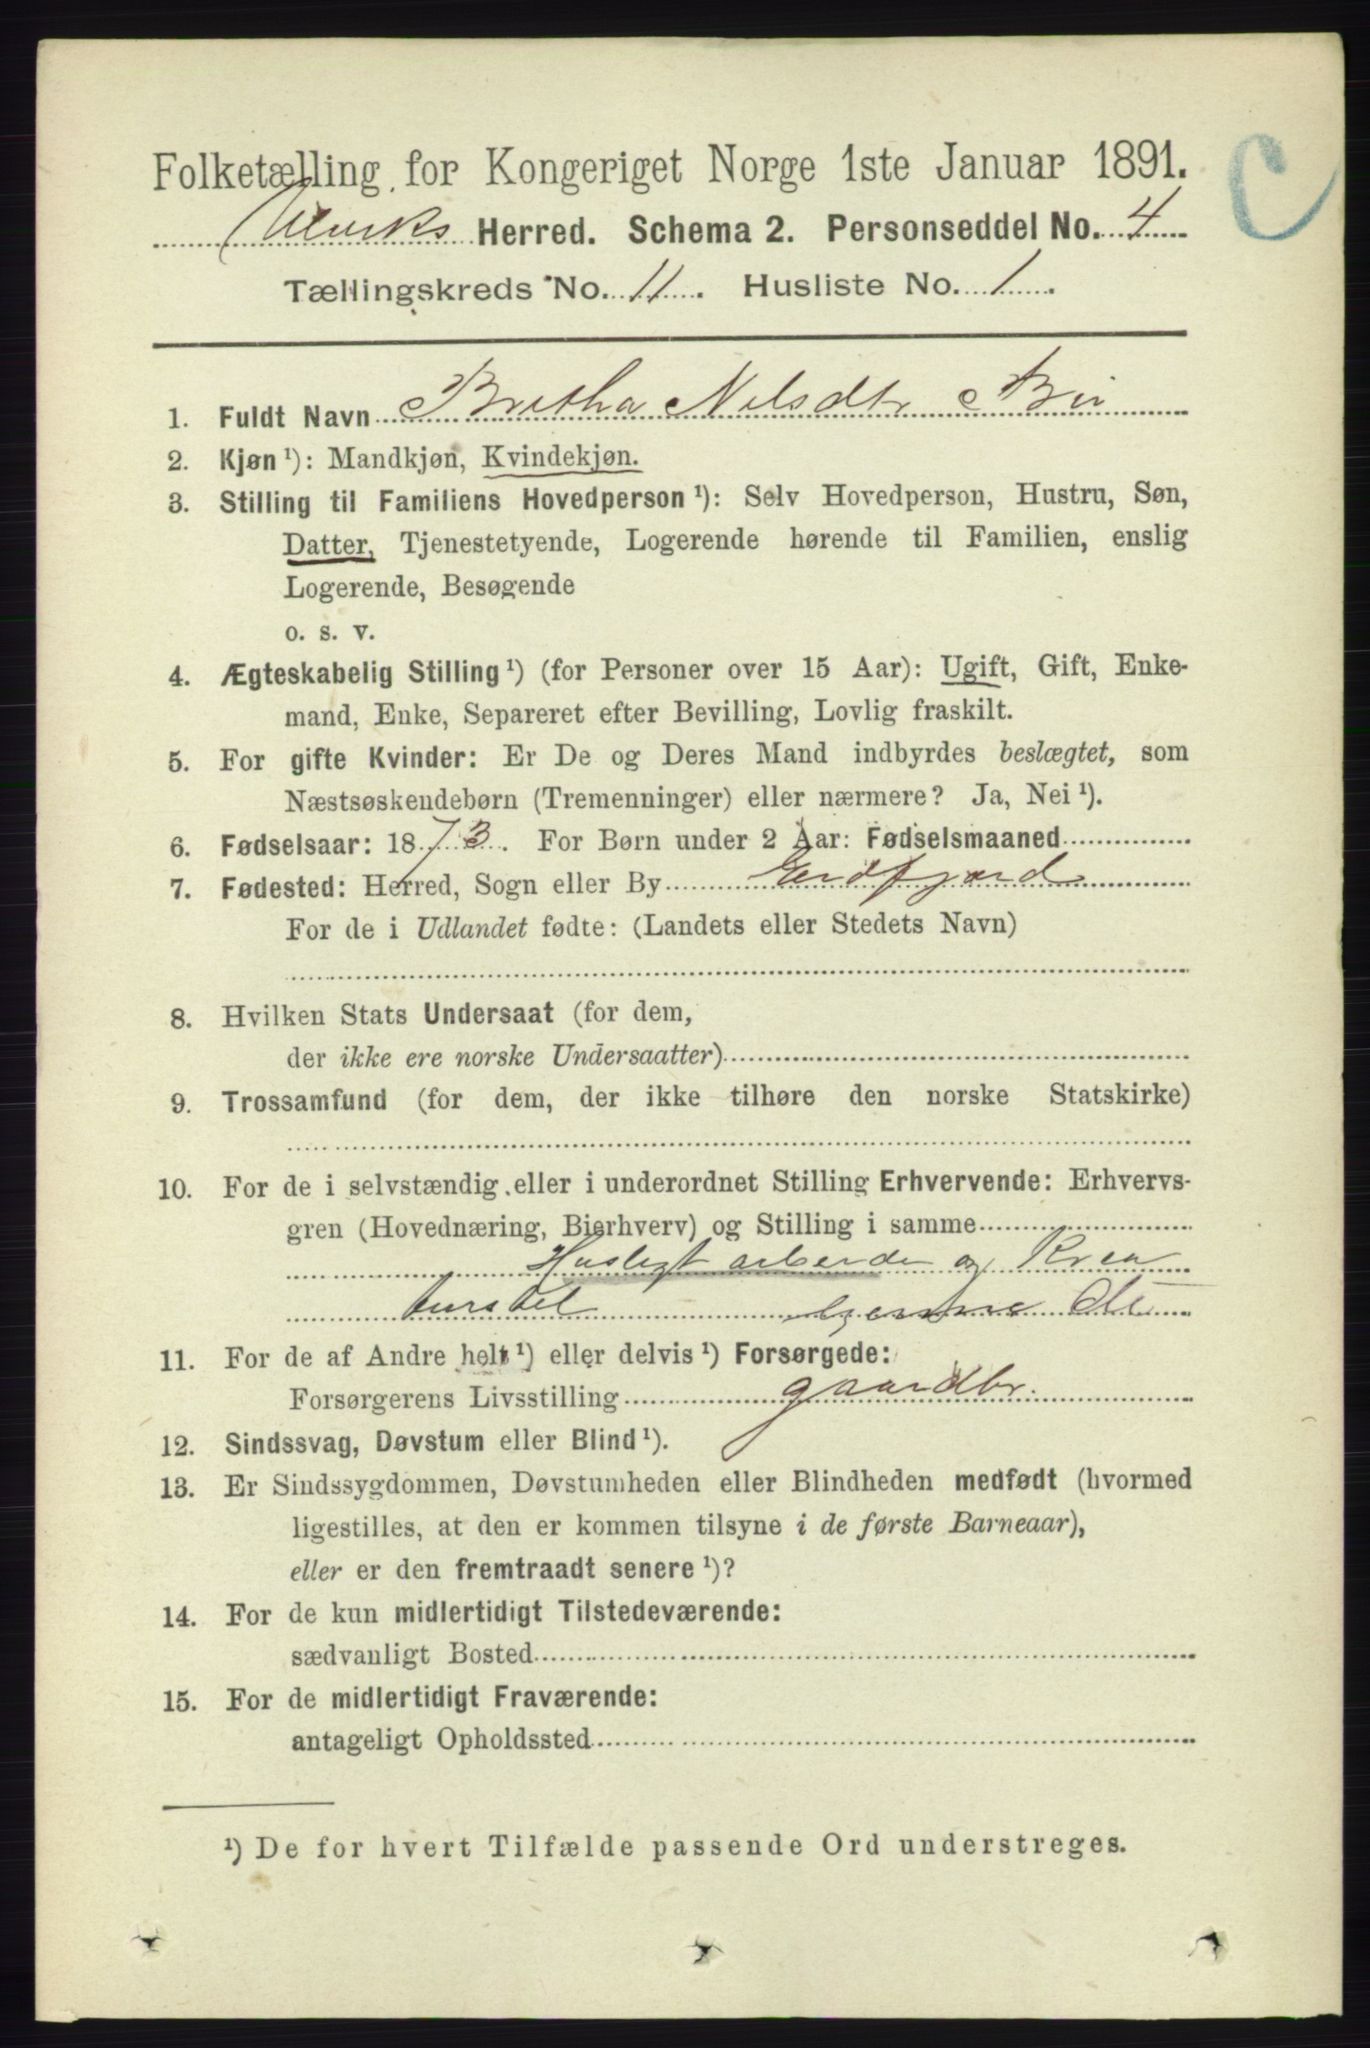 C
Folketælling for Kongeriget Norge 1ste Januar 1891.
Ulviks Herred. Schema 2. Personseddel No. 4
Tællingskreds No. 11. Husliste No. 1.
1. Fuldt Navn Britha Nilsdtr
2. Kjøn ¹): Mandkjøn, Kvindekjøn.
3. Stilling til Familiens Hovedperson ¹): Selv Hovedperson, Hustru, Søn,
Datter, Tjenestetyende, Logerende hørende til Familien, enslig
Logerende, Besøgende
o. s. v.
4. Ægteskabelig Stilling ¹) (for Personer over 15 Aar): Ugift, Gift, Enke-
mand, Enke, Separeret efter Bevilling, Lovlig fraskilt.
5. For gifte Kvinder: Er De og Deres Mand indbyrdes beslægtet, som
Næstsøskendebørn (Tremenninger) eller nærmere? Ja, Nei ¹).
6. Fødselsaar: 1873. For Børn under 2 Aar: Fødselsmaaned
7. Fødested: Herred, Sogn eller By Eidfjord
For de i Udlandet fødte: (Landets eller Stedets Navn)
8. Hvilken Stats Undersaat (for dem,
der ikke ere norske Undersaatter)
9. Trossamfund (for dem, der ikke tilhøre den norske Statskirke)
10. For de i selvstændig eller i underordnet Stilling Erhvervende: Erhvervs-
gren (Hovednæring, Bierhverv) og Stilling i samme
Husligt arbeide og Krea
turstel
11. For de af Andre helt ¹) eller delvis ¹) Forsørgede:
Forsørgerens Livsstilling gaardbr.
12. Sindssvag, Døvstum eller Blind ¹).
13. Er Sindssygdommen, Døvstumheden eller Blindheden medfødt (hvormed
ligestilles, at den er kommen tilsyne i de første Barneaar),
eller er den fremtraadt senere ¹)?
14. For de kun midlertidigt Tilstedeværende:
sædvanligt Bosted
15. For de midlertidigt Fraværende:
antageligt Opholdssted
¹) De for hvert Tilfælde passende Ord understreges.